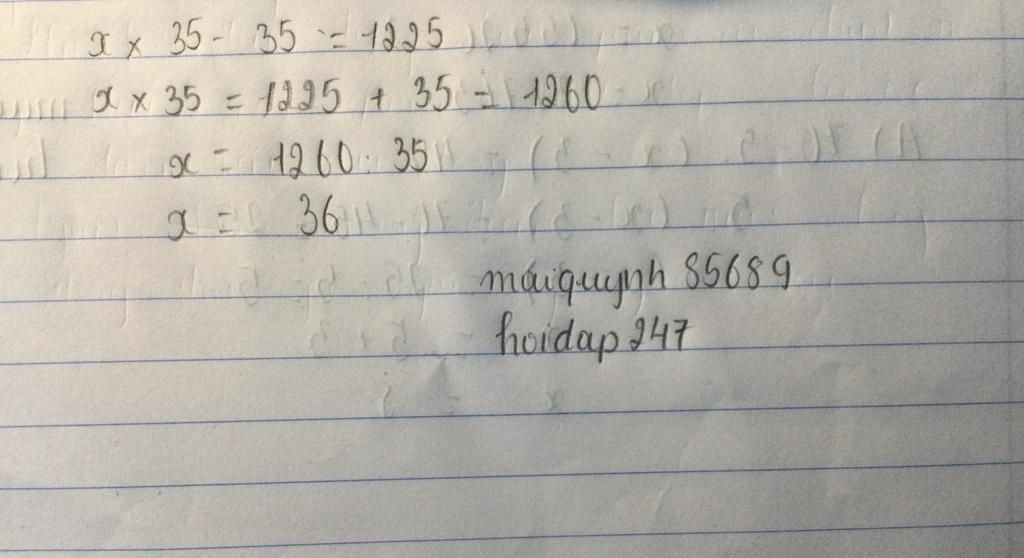 x × 35 - 35 = 1225
x × 35 = 1225 + 35 = 1260
x = 1260 : 35
x = 36
maiquynh 85689
hoidap247